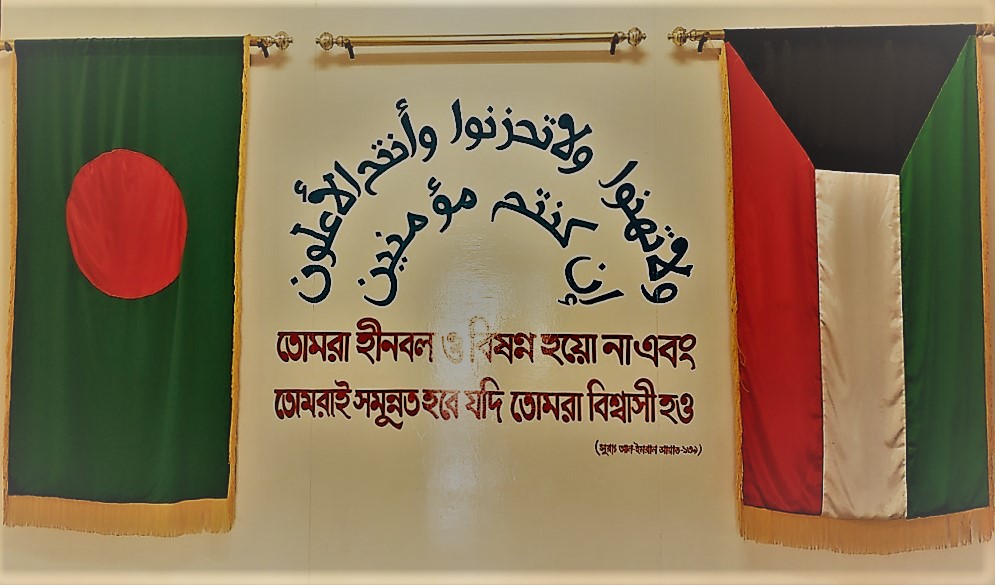 ولا تهنوا ولا تحزنوا وأنتم الأعلون
إن كنتم مؤمنين
তোমরা হীনবল ও বিষণ্ন হয়ো না এবং
তোমরাই সমুন্নত হবে যদি তোমরা বিশ্বাসী হও
(সুরাহ আল-ইমরান আয়াত-১৩৯)